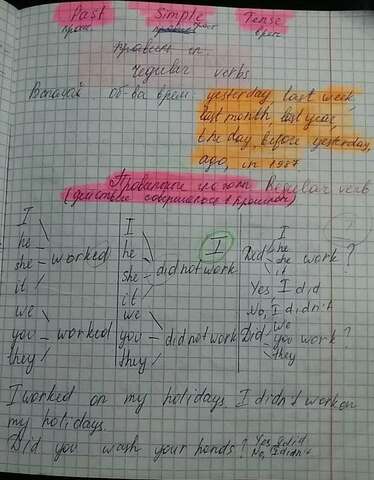 Past Simple Tense
regular verbs
yesterday, last week,
last month, last year,
the day before yesterday,
ago, in 1987
Regular verb
(действие совершилось в прошлом)
I
he
she worked
it
we
you worked
they
I
he
she did not work
it
we
you did not work
they
I
I
Did he she it work?
Yes I did
No, I didn't
Did we you they work?
I worked on my holidays I didn't work on
my holidays.
Did you wash your hands? Yes I did
No, I didn't